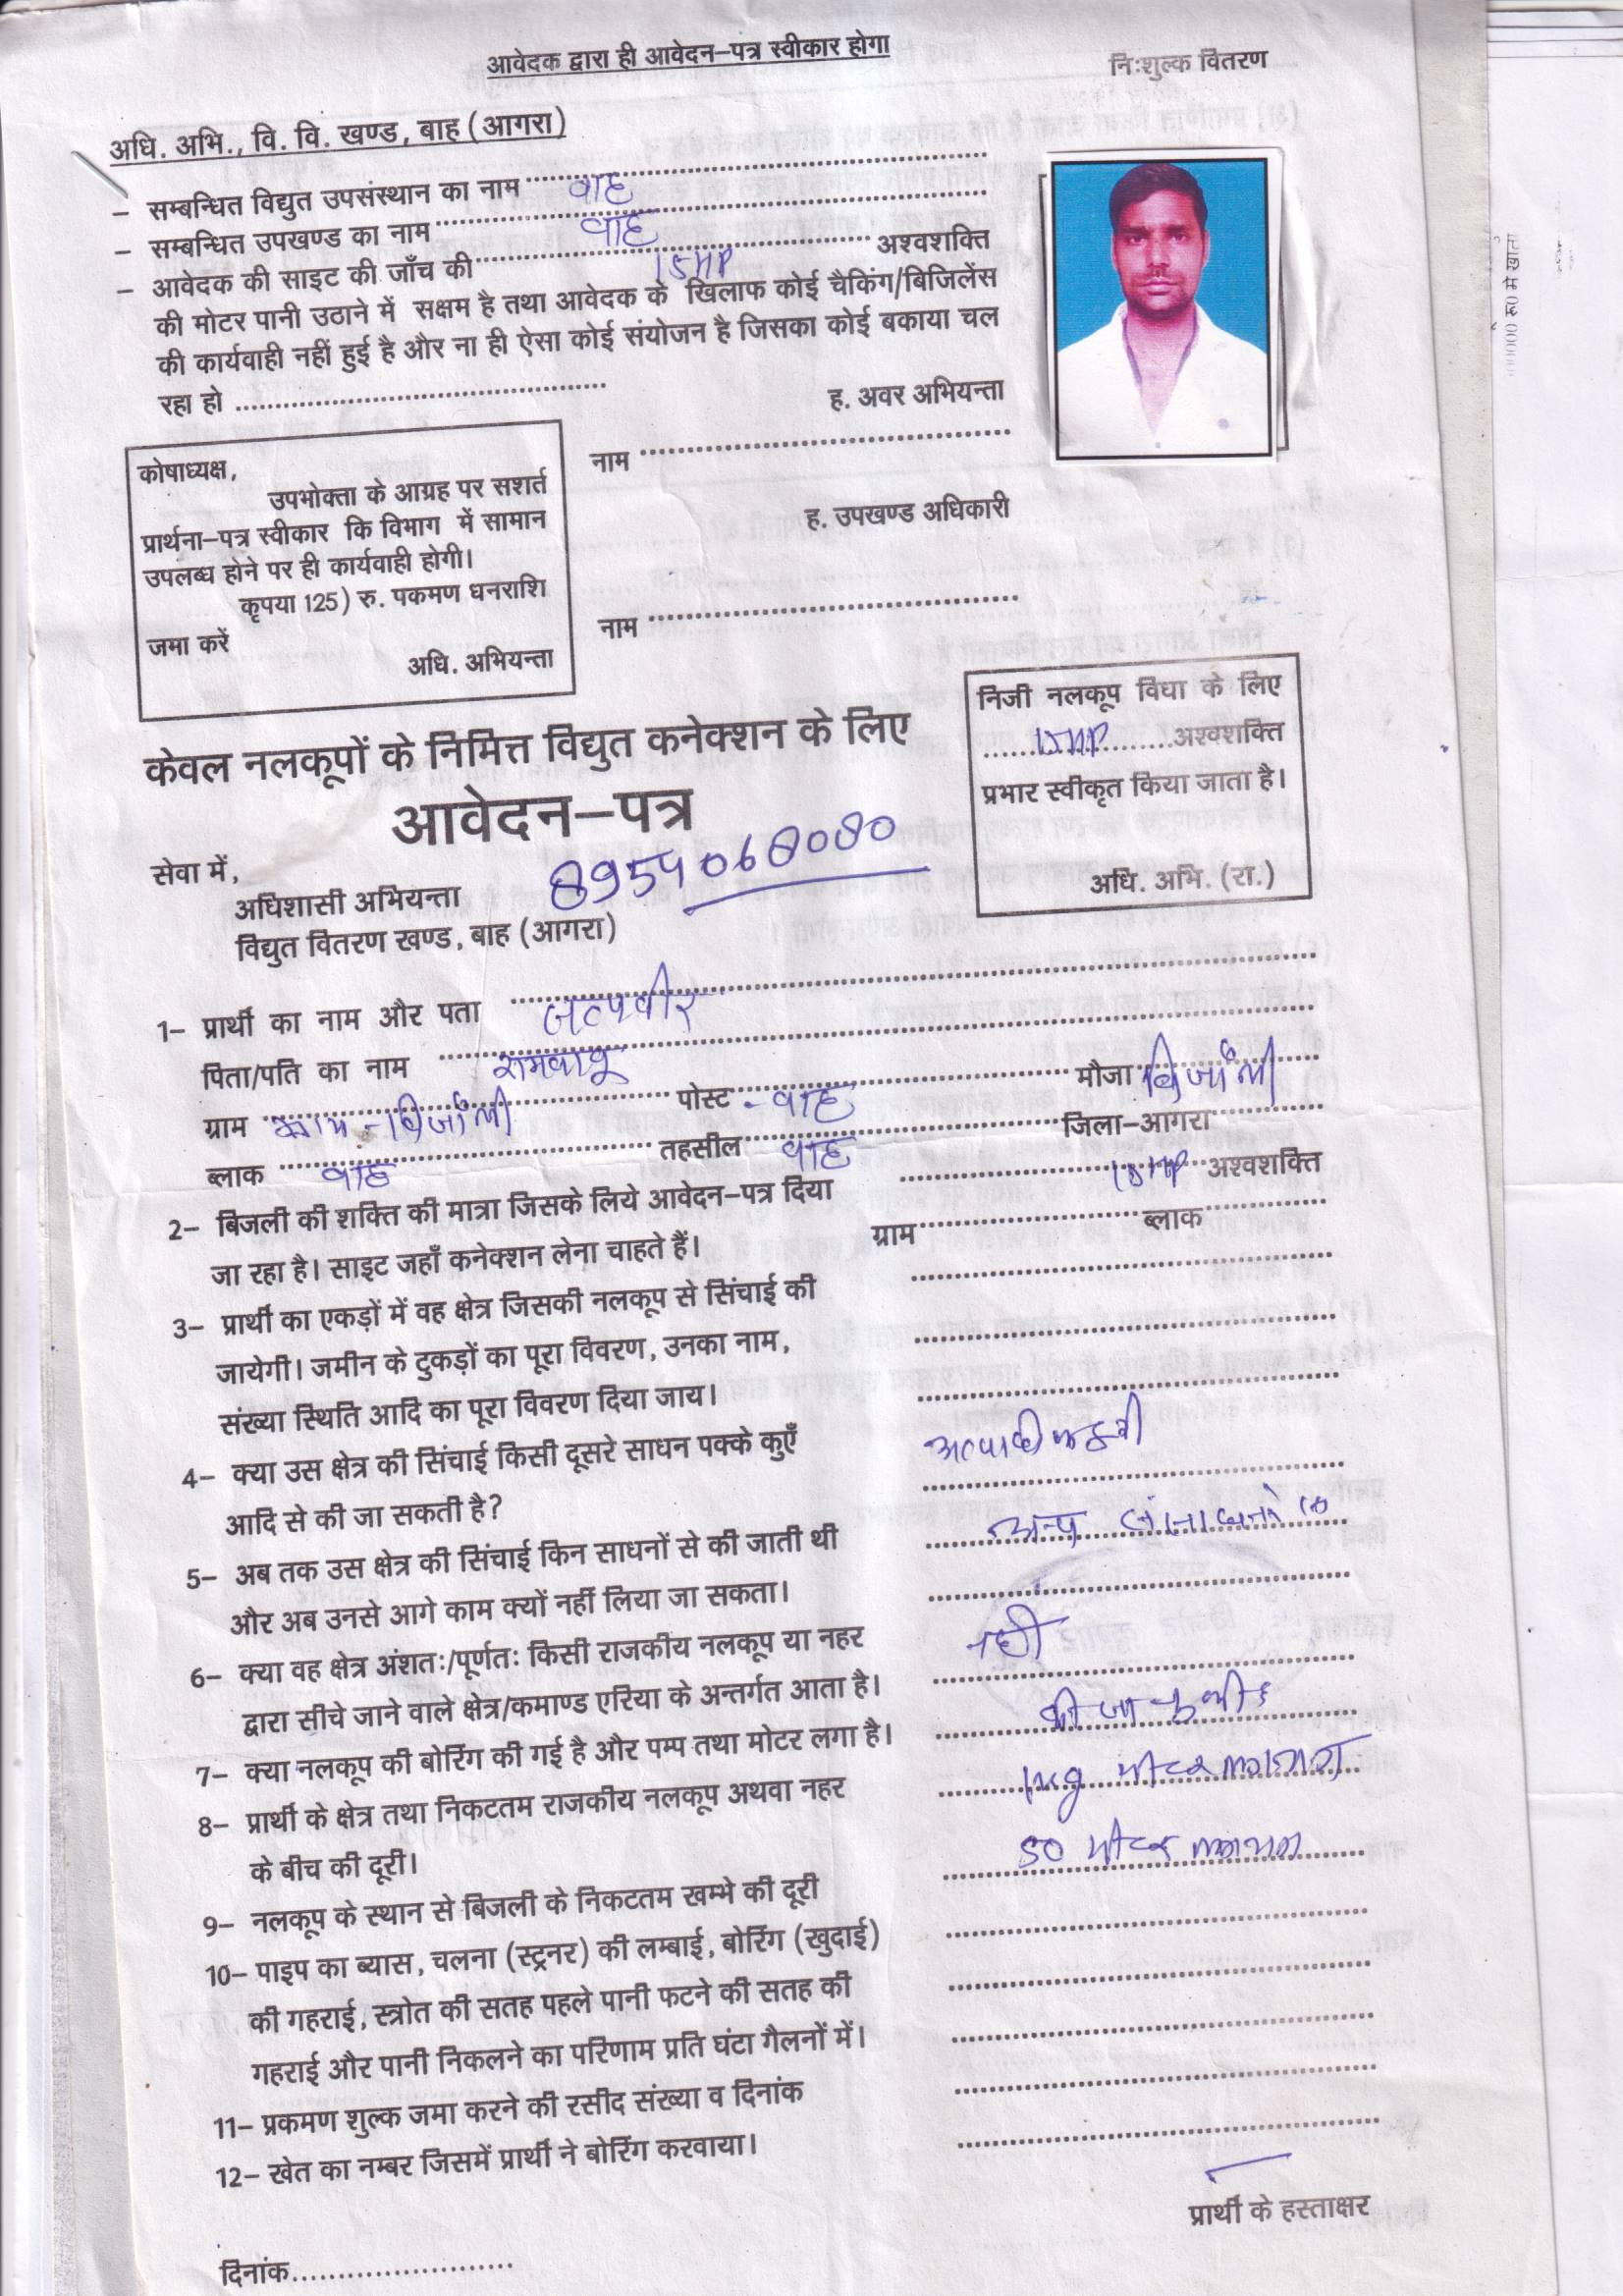 आवेदक द्वारा ही आवेदन–पत्र स्वीकार होगा
निःशुल्क वितरण
अधि. अभि., वि. वि. खण्ड, बाह (आगरा)
– सम्बन्धित विद्युत उपसंस्थान का नाम वाह
– सम्बन्धित उपखण्ड का नाम वाह
– आवेदक की साइट की जाँच की 15HP अश्वशक्ति
की मोटर पानी उठाने में सक्षम है तथा आवेदक के खिलाफ कोई चैकिंग/बिजिलेंस
की कार्यवाही नहीं हुई है और ना ही ऐसा कोई संयोजन है जिसका कोई बकाया चल
रहा हो
ह. अवर अभियन्ता
नाम
ह. उपखण्ड अधिकारी
नाम
कोषाध्यक्ष,
उपभोक्ता के आग्रह पर सशर्त
प्रार्थना–पत्र स्वीकार कि विभाग में सामान
उपलब्ध होने पर ही कार्यवाही होगी।
कृपया 125) रु. पकमण धनराशि
जमा करें
अधि. अभियन्ता
निजी नलकूप विधा के लिए
15HP अश्वशक्ति
प्रभार स्वीकृत किया जाता है।
अधि. अभि. (रा.)
केवल नलकूपों के निमित्त विद्युत कनेक्शन के लिए
आवेदन–पत्र
सेवा में,
अधिशासी अभियन्ता
विद्युत वितरण खण्ड, बाह (आगरा)
8954068080
1– प्रार्थी का नाम और पता सत्यवीर
पिता/पति का नाम रामबाबू
ग्राम ग्राम - बिजौली पोस्ट - वाह मौजा बिजौली
ब्लाक वाह तहसील वाह जिला–आगरा
2– बिजली की शक्ति की मात्रा जिसके लिये आवेदन–पत्र दिया 15HP अश्वशक्ति
जा रहा है। साइट जहाँ कनेक्शन लेना चाहते हैं। ग्राम ब्लाक
3– प्रार्थी का एकड़ों में वह क्षेत्र जिसकी नलकूप से सिंचाई की
जायेगी। जमीन के टुकड़ों का पूरा विवरण, उनका नाम,
संख्या स्थिति आदि का पूरा विवरण दिया जाय।
4– क्या उस क्षेत्र की सिंचाई किसी दूसरे साधन पक्के कुएँ
आदि से की जा सकती है?
5– अब तक उस क्षेत्र की सिंचाई किन साधनों से की जाती थी अन्य
और अब उनसे आगे काम क्यों नहीं लिया जा सकता।
6– क्या वह क्षेत्र अंशतः/पूर्णतः किसी राजकीय नलकूप या नहर नही
द्वारा सीचे जाने वाले क्षेत्र/कमाण्ड एरिया के अन्तर्गत आता है।
7– क्या नलकूप की बोरिंग की गई है और पम्प तथा मोटर लगा है। की जा चुकी है
8– प्रार्थी के क्षेत्र तथा निकटतम राजकीय नलकूप अथवा नहर मीटर लगभग
के बीच की दूरी।
9– नलकूप के स्थान से बिजली के निकटतम खम्भे की दूरी 50 मीटर लगभग
10– पाइप का ब्यास, चलना (स्ट्रनर) की लम्बाई, बोरिंग (खुदाई)
की गहराई, स्त्रोत की सतह पहले पानी फटने की सतह की
गहराई और पानी निकलने का परिणाम प्रति घंटा गैलनों में।
11– प्रकमण शुल्क जमा करने की रसीद संख्या व दिनांक
12– खेत का नम्बर जिसमें प्रार्थी ने बोरिंग करवाया।
प्रार्थी के हस्ताक्षर
दिनांक